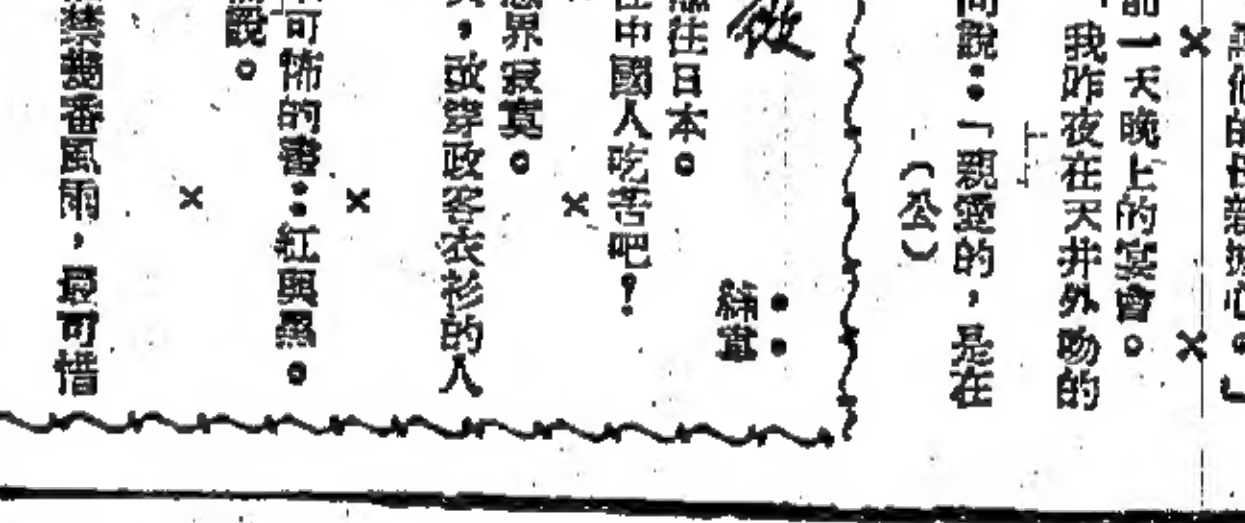 的母親擔心。」
×　×
前一天晚上的宴會。
「我昨夜在天井外吻的
問說：「親愛的，是在
（公）
往日本。
在中國人吃苦吧！
×
界寂寞。
，改穿政客衣衫的人
×
可怖的書：紅與黑。
說。
×
禁幾番風雨，最可惜